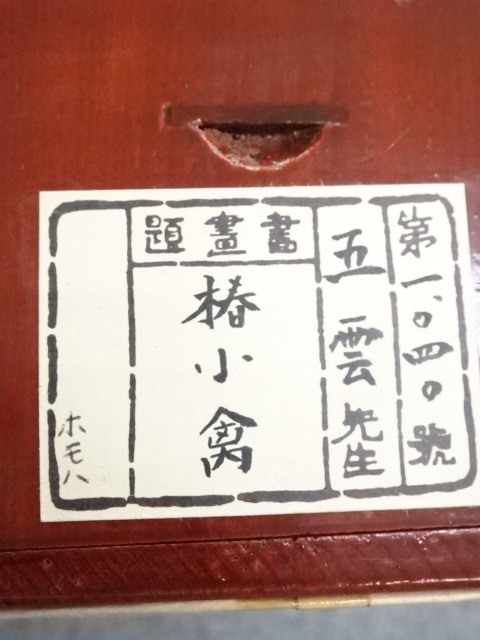 第一、〇四〇號
五雲先生
書畫題
椿小禽
ホモハ